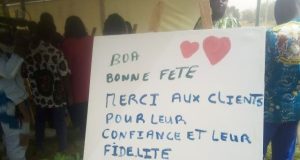 BOA
BONNE FETE
MERCI AUX CLIENTS
POUR LEUR
CONFIANCE ET LEUR
FIDELITE